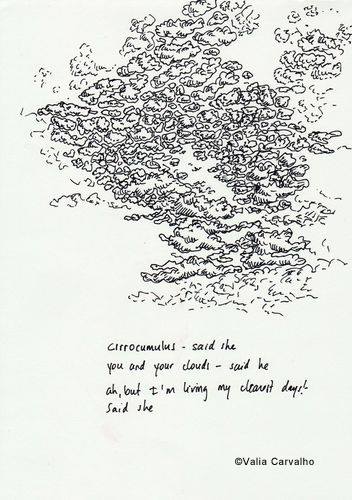 cirrocumulus - said she
you and your clouds - said he
ah, but I'm living my clearest days!
said she
©Valia Carvalho